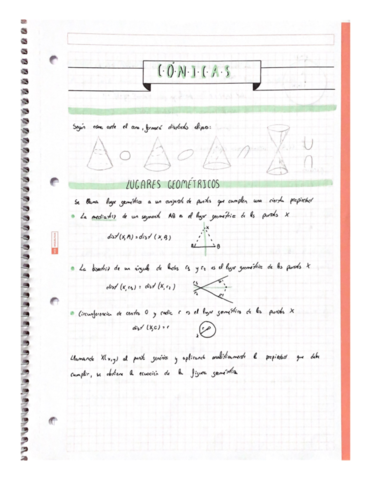 CÓNICAS
Según como corte el cono, formará distintas elipses:
LUGARES GEOMÉTRICOS
Se llama lugar geométrico a un conjunto de puntos que cumplen una cierta propiedad
La mediatriz de un segmento AB es el lugar geométrico de los puntos X
dist (X,A) = dist (X,B)
La bisectriz de un ángulo de lados r₁ y r₂ es el lugar geométrico de los puntos X
dist (X,r₁) = dist (X,r₂)
Circunferencia de centro O y radio r es el lugar geométrico de los puntos X
dist (X,O) = r
Llamando X(x,y) al punto genérico y aplicando analíticamente la propiedad que debe
cumplir, se obtiene la ecuación de la figura geométrica